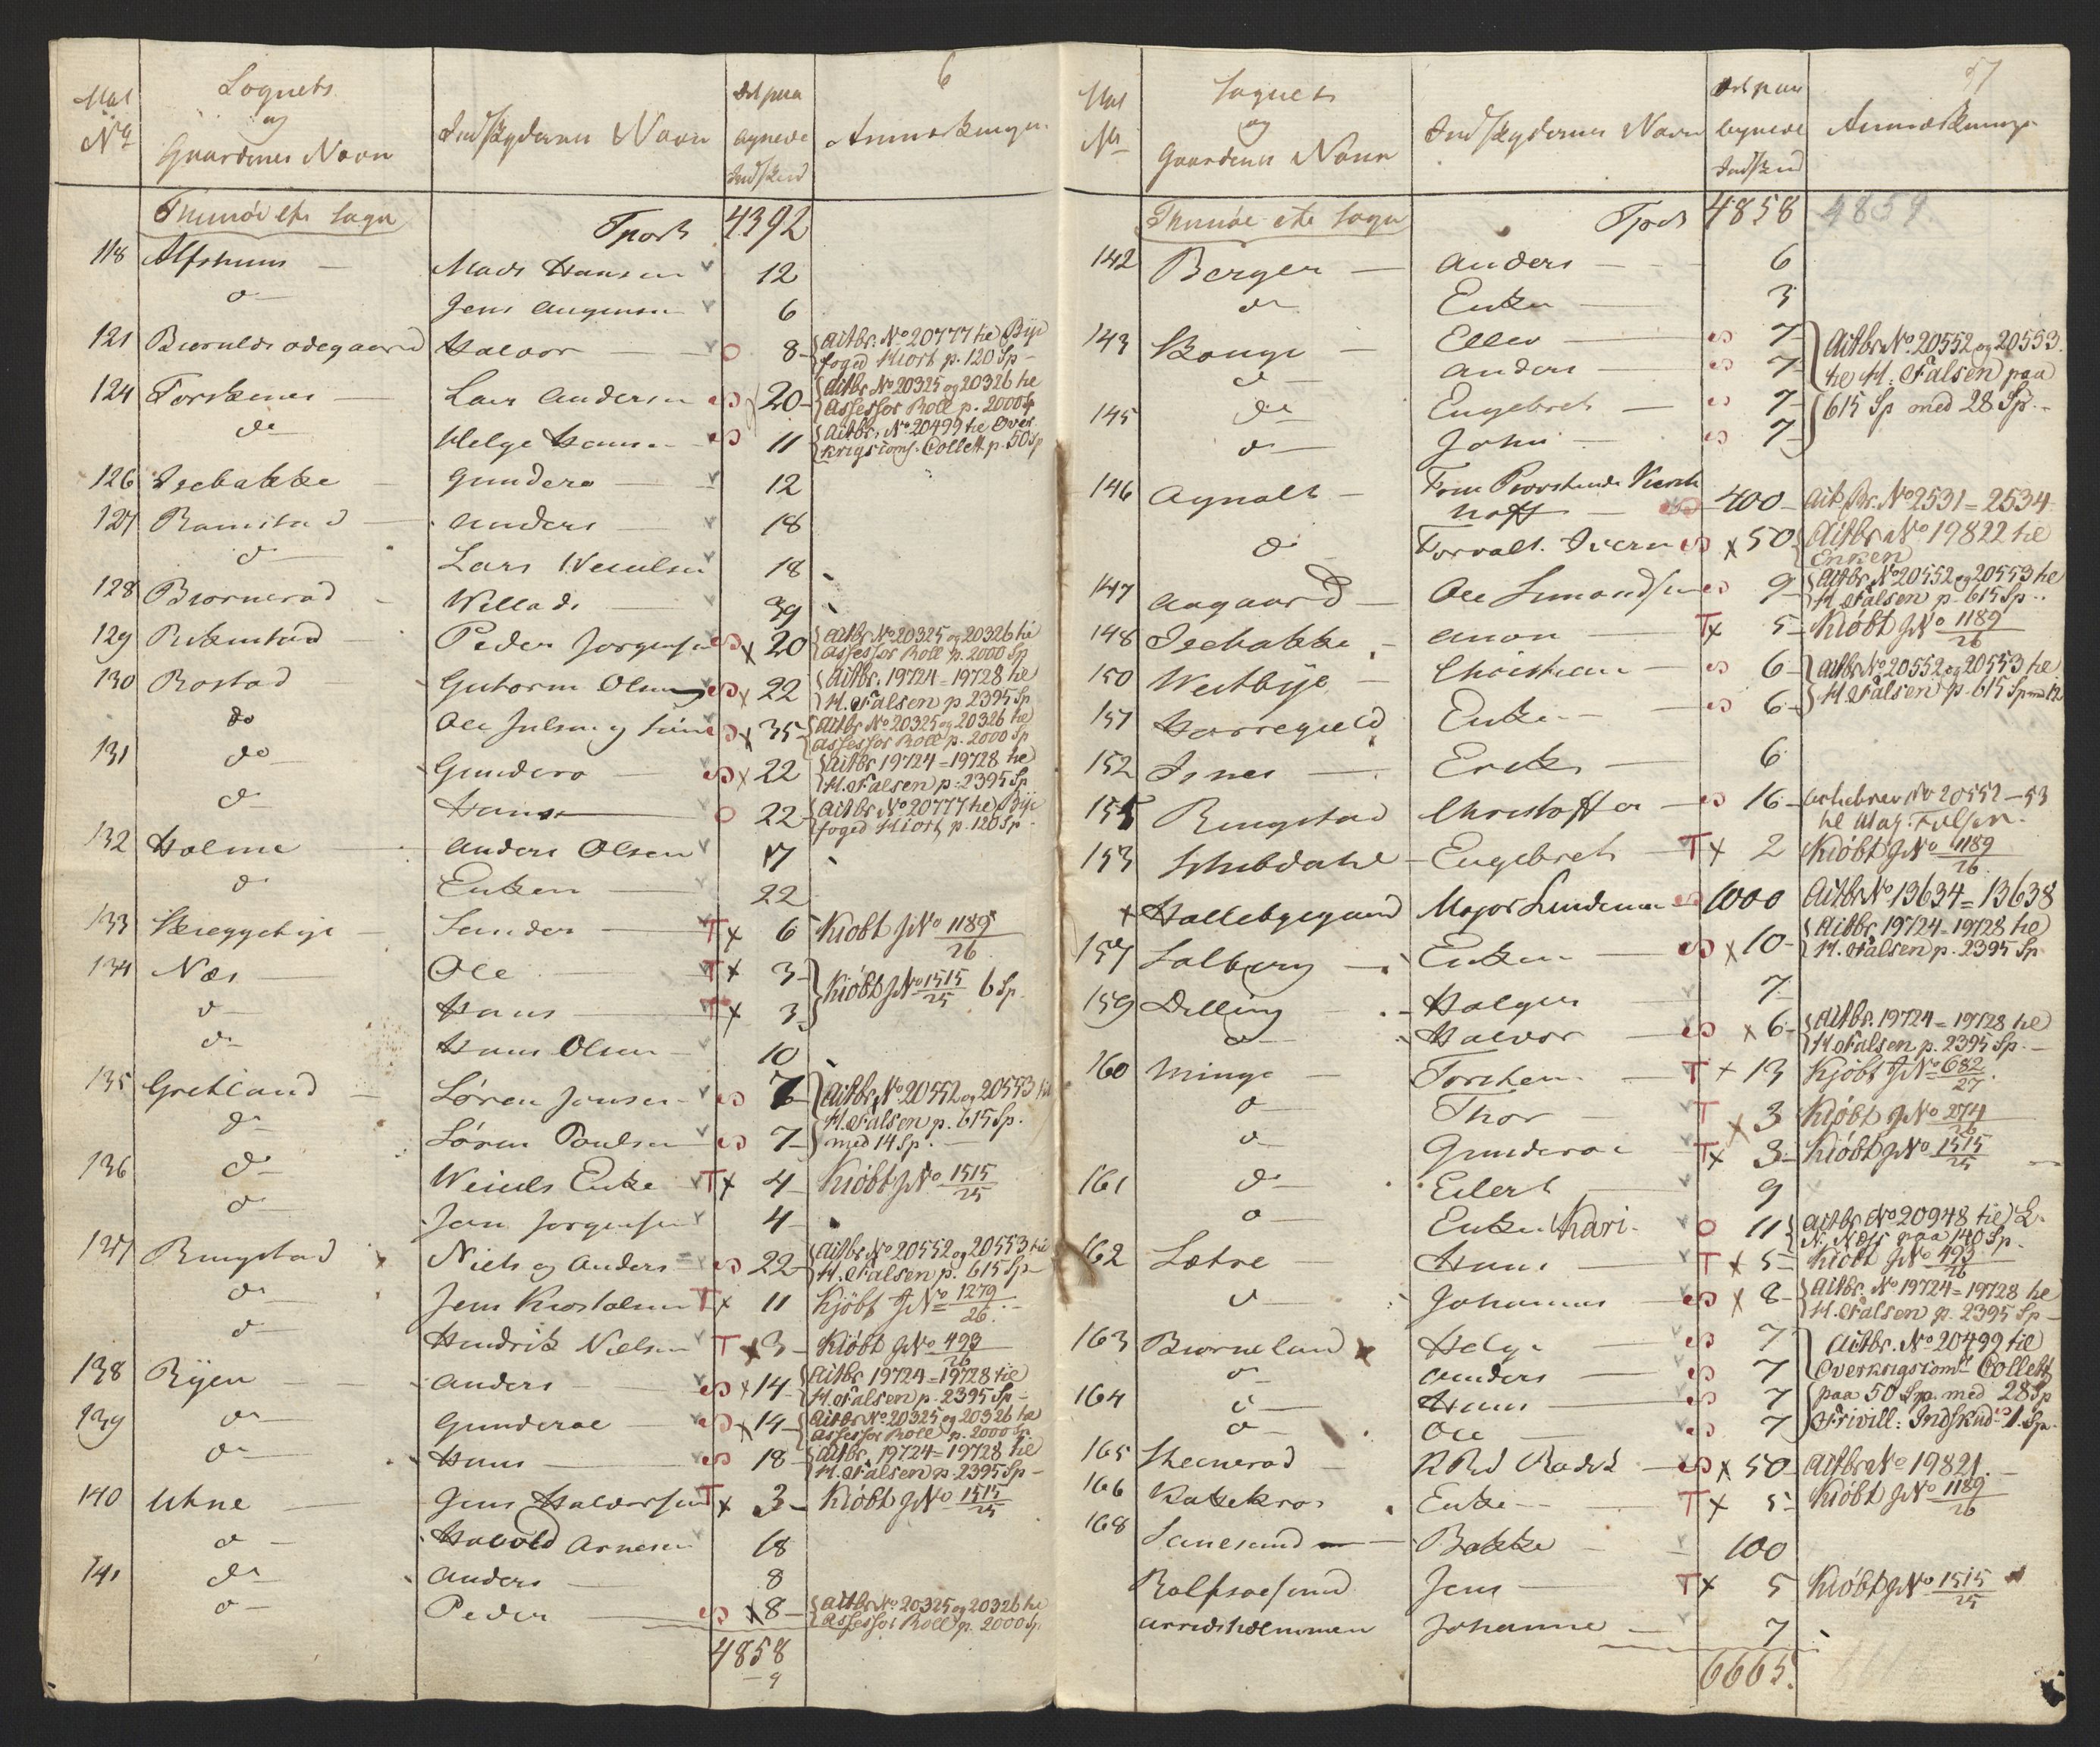 6
Mat
No
Sognets
og
Gaardenes Navn
Indskydernes Navn
Det paa
lagnede
Indskud
Anmærkninger
Thunøe etc Sogn
Tpord 4392
118 Alfshuus Mads Hansen 12
do Jens Augensen 6
121 Biørulds ødegaard Halvor 8 Actbr. No 20777 til Bye
foged Hiort p. 120 Sp
124 Torskenes Lars Andersen 20 Actbr No 20325 og 20326 til
Assessor Roll p. 2000 Sp
do Helge Hansen 11 Actbr. No 20499 til Over
krigscoms. Collett p. 50 Sp
126 Isebakke Gundero 12
127 Ramstad Anders 18
do Lars Wenelsen 18
128 Biørnerød Willads 39
129 Rikenstad Peder Jørgensen 20 Actbr No 20325 og 20326 til
Assessor Roll p. 2000 Sp
130 Rostad Gutorm Olsen 22 Actbr. 19724=19728 til
H. Falsen p. 2395 Sp
do Ole Julsen og 35 Actbr No 20325 og 20326 til
Assessor Roll p. 2000 Sp
131 do Gundero 22 Actbr 19724=19728 til
H. Falsen p. 2395 Sp
do Hans 22 Actbr No 20777 til Bye
foged Hiort p. 120 Sp
132 Holme Anders Olsen 17
do Enken 22
133 Skieggebye Sander 6 Kiøbt J No 1189/26
134 Næs Ole 3 Kiøbt J No 1515/25 6 Sp
do Hans 3
do Hans Olsen 10
135 Gretland Søren Jensen 7 Actbr. No 20552 og 20553 til
H. Falsen p. 615 Sp.
do Søren Poulsen 7 med 14 Sp.
136 do Weiels Enke 4 Kiøbt J No 1515/25
do Jan Jørgensen 4
137 Ringstad Niels og Anders 22 Actbr No 20552 og 20553 til
H. Falsen p. 615 Sp
do Jens Kiostolsen 11 Kjøbt J No 1279/26
do Hendrik Nielsen 3 Kiøbt J No 493/26
138 Ryen Anders 14 Actbr 19724=19728 til
H. Falsen p. 2395 Sp
139 do Gunderoe 14 Actbr No 20325 og 20326 til
Assessor Roll p. 2000 Sp
do Hans 18 Actbr. 19724=19728 til
H. Falsen p. 2395 Sp
140 Uhne Jens Halvorsen 3 Kiøbt J No 1515/25
do Havold Arnesen 18
141 do Anders 8
do Peder 8 Actbr No 20325 og 20326 til
Assessor Roll p. 2000 Sp
4858
9
57
Mat
No
Sognets
og
Gaardenes Navn
Indskydernes Navn
Det paa
lagnede
Indskud
Anmærkninger
Thunøe etc Sogn
Tpord 4858 4859
142 Berger Anders 6
do Enke 3
143 Bouge Ellev 7 Actbr No 20552 og 20553
til H. Falsen paa
do Anders 7
615 Sp med 28 Sp.
145 do Engebret 7
do John 7
146 Agnalt Frue Provstinde
hoff 400 Act Br. No 2531=2534
do Forvalt. Iversen 50 Actbr No 19822 til
Enken
147 Aagaard Ole Simondsen 9 Actbr No 20552 og 20553 til
H. Falsen p 615 Sp.
148 Isebakke Anon 5 Kiøbt J No 1189/26
150 Westbye Christian 6 Actbr No 20552 og 20553 til
H. Falsen p. 615 Sp med 12
151 Horregield Enken 6
152 Isnes Erik 6
155 Ringstad Christoffer 16 Actiebrev No 20552-53
til Mag. Falsen.
153 Schibdahl Engebret 2 Kiøbt J No 1189/26
Hallebyegaard Major Lindeman 1000 Actbr No 13634=13638
157 Solberg Enken 10 Actbr. 19724=19728 til
H. Falsen p. 2395 Sp
159 Dilling Holger 7
do Halvor 6 Actbr. 19724=19728 til
H. Falsen p. 2395 Sp.
160 Minge Torsten 13 Kjøbt J No 682/27
do Thor 3 Kiøbt J No 274/26
do Gunderoe 3 Kiøbt J No 1515/25
161 do Eilert 9
do Enken Kari 11 Actbr No 20948 til L.
N. Næss paa 140 Sp.
162 Lætre Hans 5 Kiøbt J No 493/26
do Johannes 8 Actbr. No 19724=19728 til
H. Falsen p. 2395 Sp
163 Biørneland Helge 7 Actbr. No 20499 til
do Anders 7 Overkrigscoms Collett
164 do Hans 7 paa 50 Sp. med 28 Sp
do Ole 7 Frivill: Indskud 1. Sp.
165 Skenerød R Rd Radich 50 Actbr No 19821.
166 Kalekros Enke 5 Kiøbt J No 1189/26
168 Sanesund Bakke 100
Rolfsøesund Jens 5 Kiøbt J No 1515/25
Arrisholmmen Johanne 7
6665.